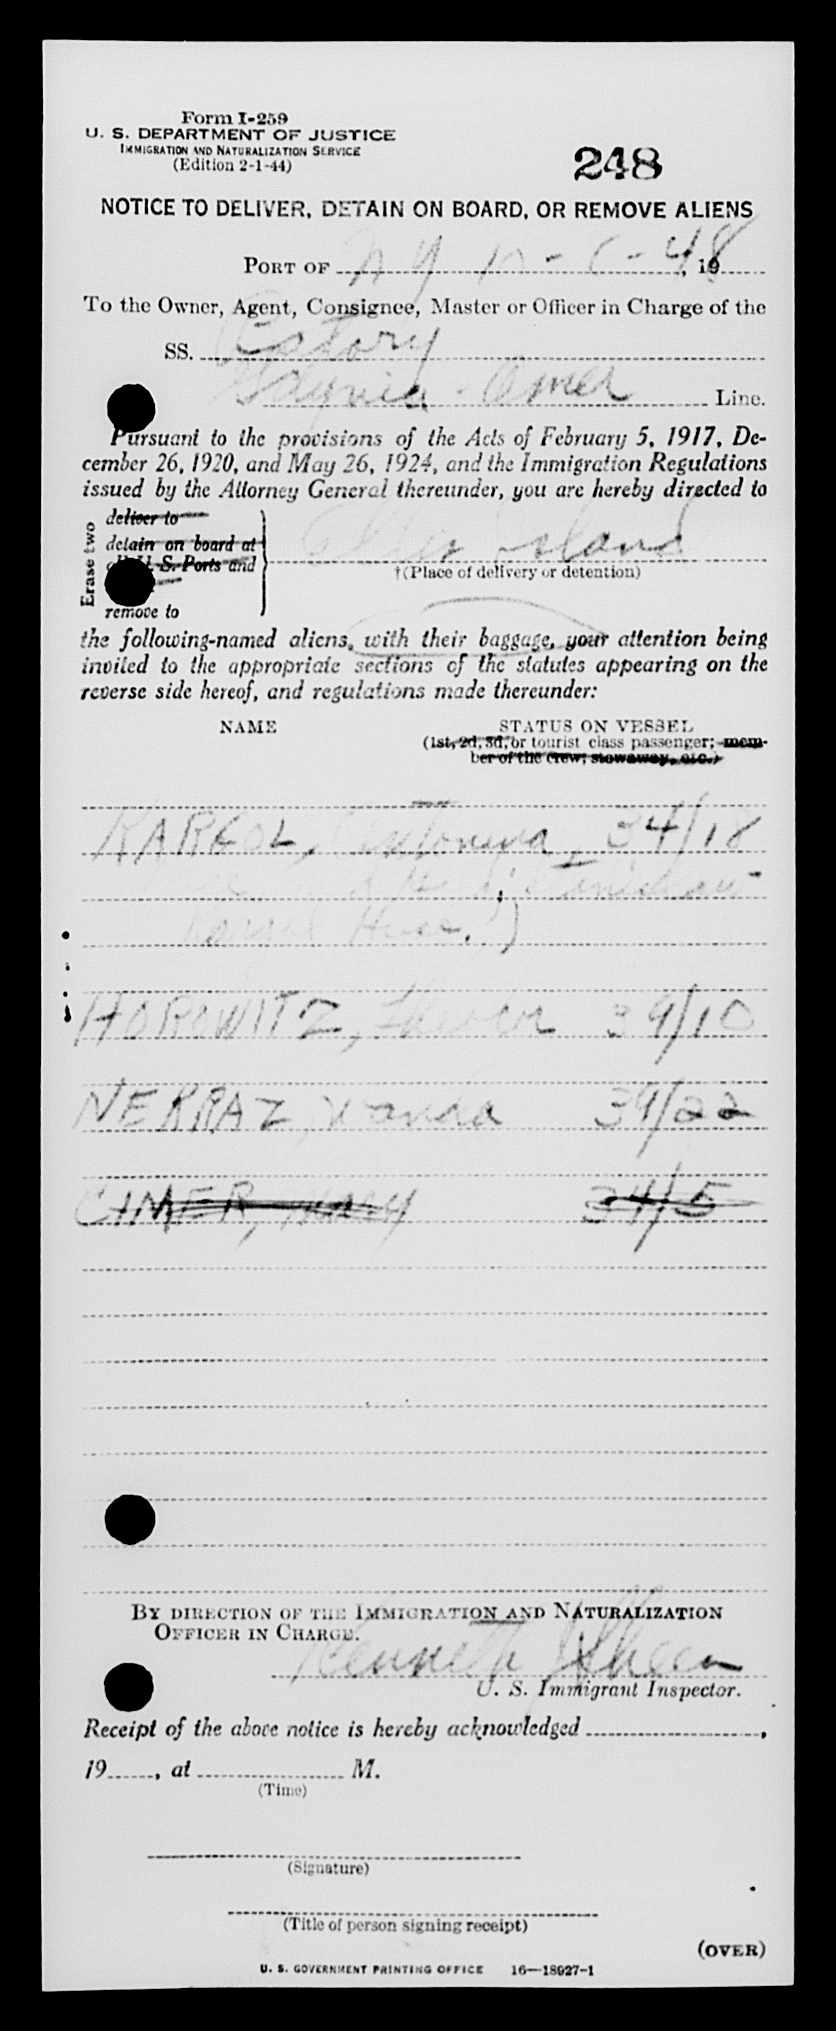 Form I-259
U. S. DEPARTMENT OF JUSTICE
IMMIGRATION AND NATURALIZATION SERVICE
(Edition 2-1-44)
248
NOTICE TO DELIVER, DETAIN ON BOARD, OR REMOVE ALIENS
PORT OF N Y - 48, 19
To the Owner, Agent, Consignee, Master or Officer in Charge of the
SS.
Gdynia - Amer Line.
Pursuant to the provisions of the Acts of February 5, 1917, De-
cember 26, 1920, and May 26, 1924, and the Immigration Regulations
issued by the Attorney General thereunder, you are hereby directed to
Erase two
deliver to
detain on board at
all U. S. Ports and
remove to
Ellis Island
†(Place of delivery or detention)
the following-named aliens, with their baggage, your attention being
invited to the appropriate sections of the statutes appearing on the
reverse side hereof, and regulations made thereunder:
NAME
STATUS ON VESSEL
(1st, 2d, 3d, or tourist class passenger; mem-
ber of the crew; stowaway, etc.)
KARGOL, Antonina, 34/18
HOROWITZ, 39/10
NERRAZ, Wanda 39/22
CIMER, 34/5
BY DIRECTION OF THE IMMIGRATION AND NATURALIZATION
OFFICER IN CHARGE.
Kenneth Sheen
U. S. Immigrant Inspector.
Receipt of the above notice is hereby acknowledged ,
19 , at M.
(Time)
(Signature)
(Title of person signing receipt)
(OVER)
U. S. GOVERNMENT PRINTING OFFICE 16—18927-1